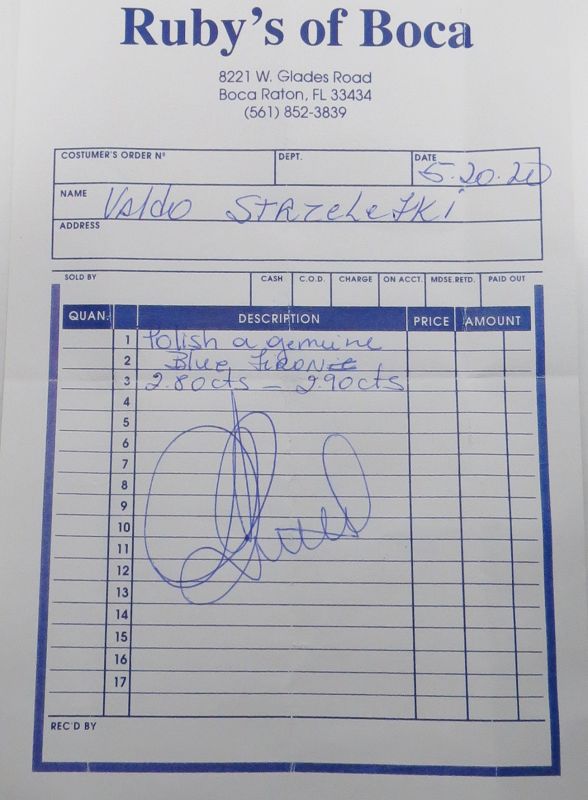 Ruby's of Boca
8221 W. Glades Road
Boca Raton, FL 33434
(561) 852-3839
COSTUMER'S ORDER Nº DEPT. DATE 5.20.20
NAME Valdo
ADDRESS
SOLD BY CASH C.O.D. CHARGE ON ACCT. MDSE.RETD. PAID OUT
QUAN. DESCRIPTION PRICE AMOUNT
1 Polish a genuine
2 Blue
3 2.80cts - 2.90cts
4
5
6
7
8
9
10
11
12
13
14
15
16
17
REC'D BY